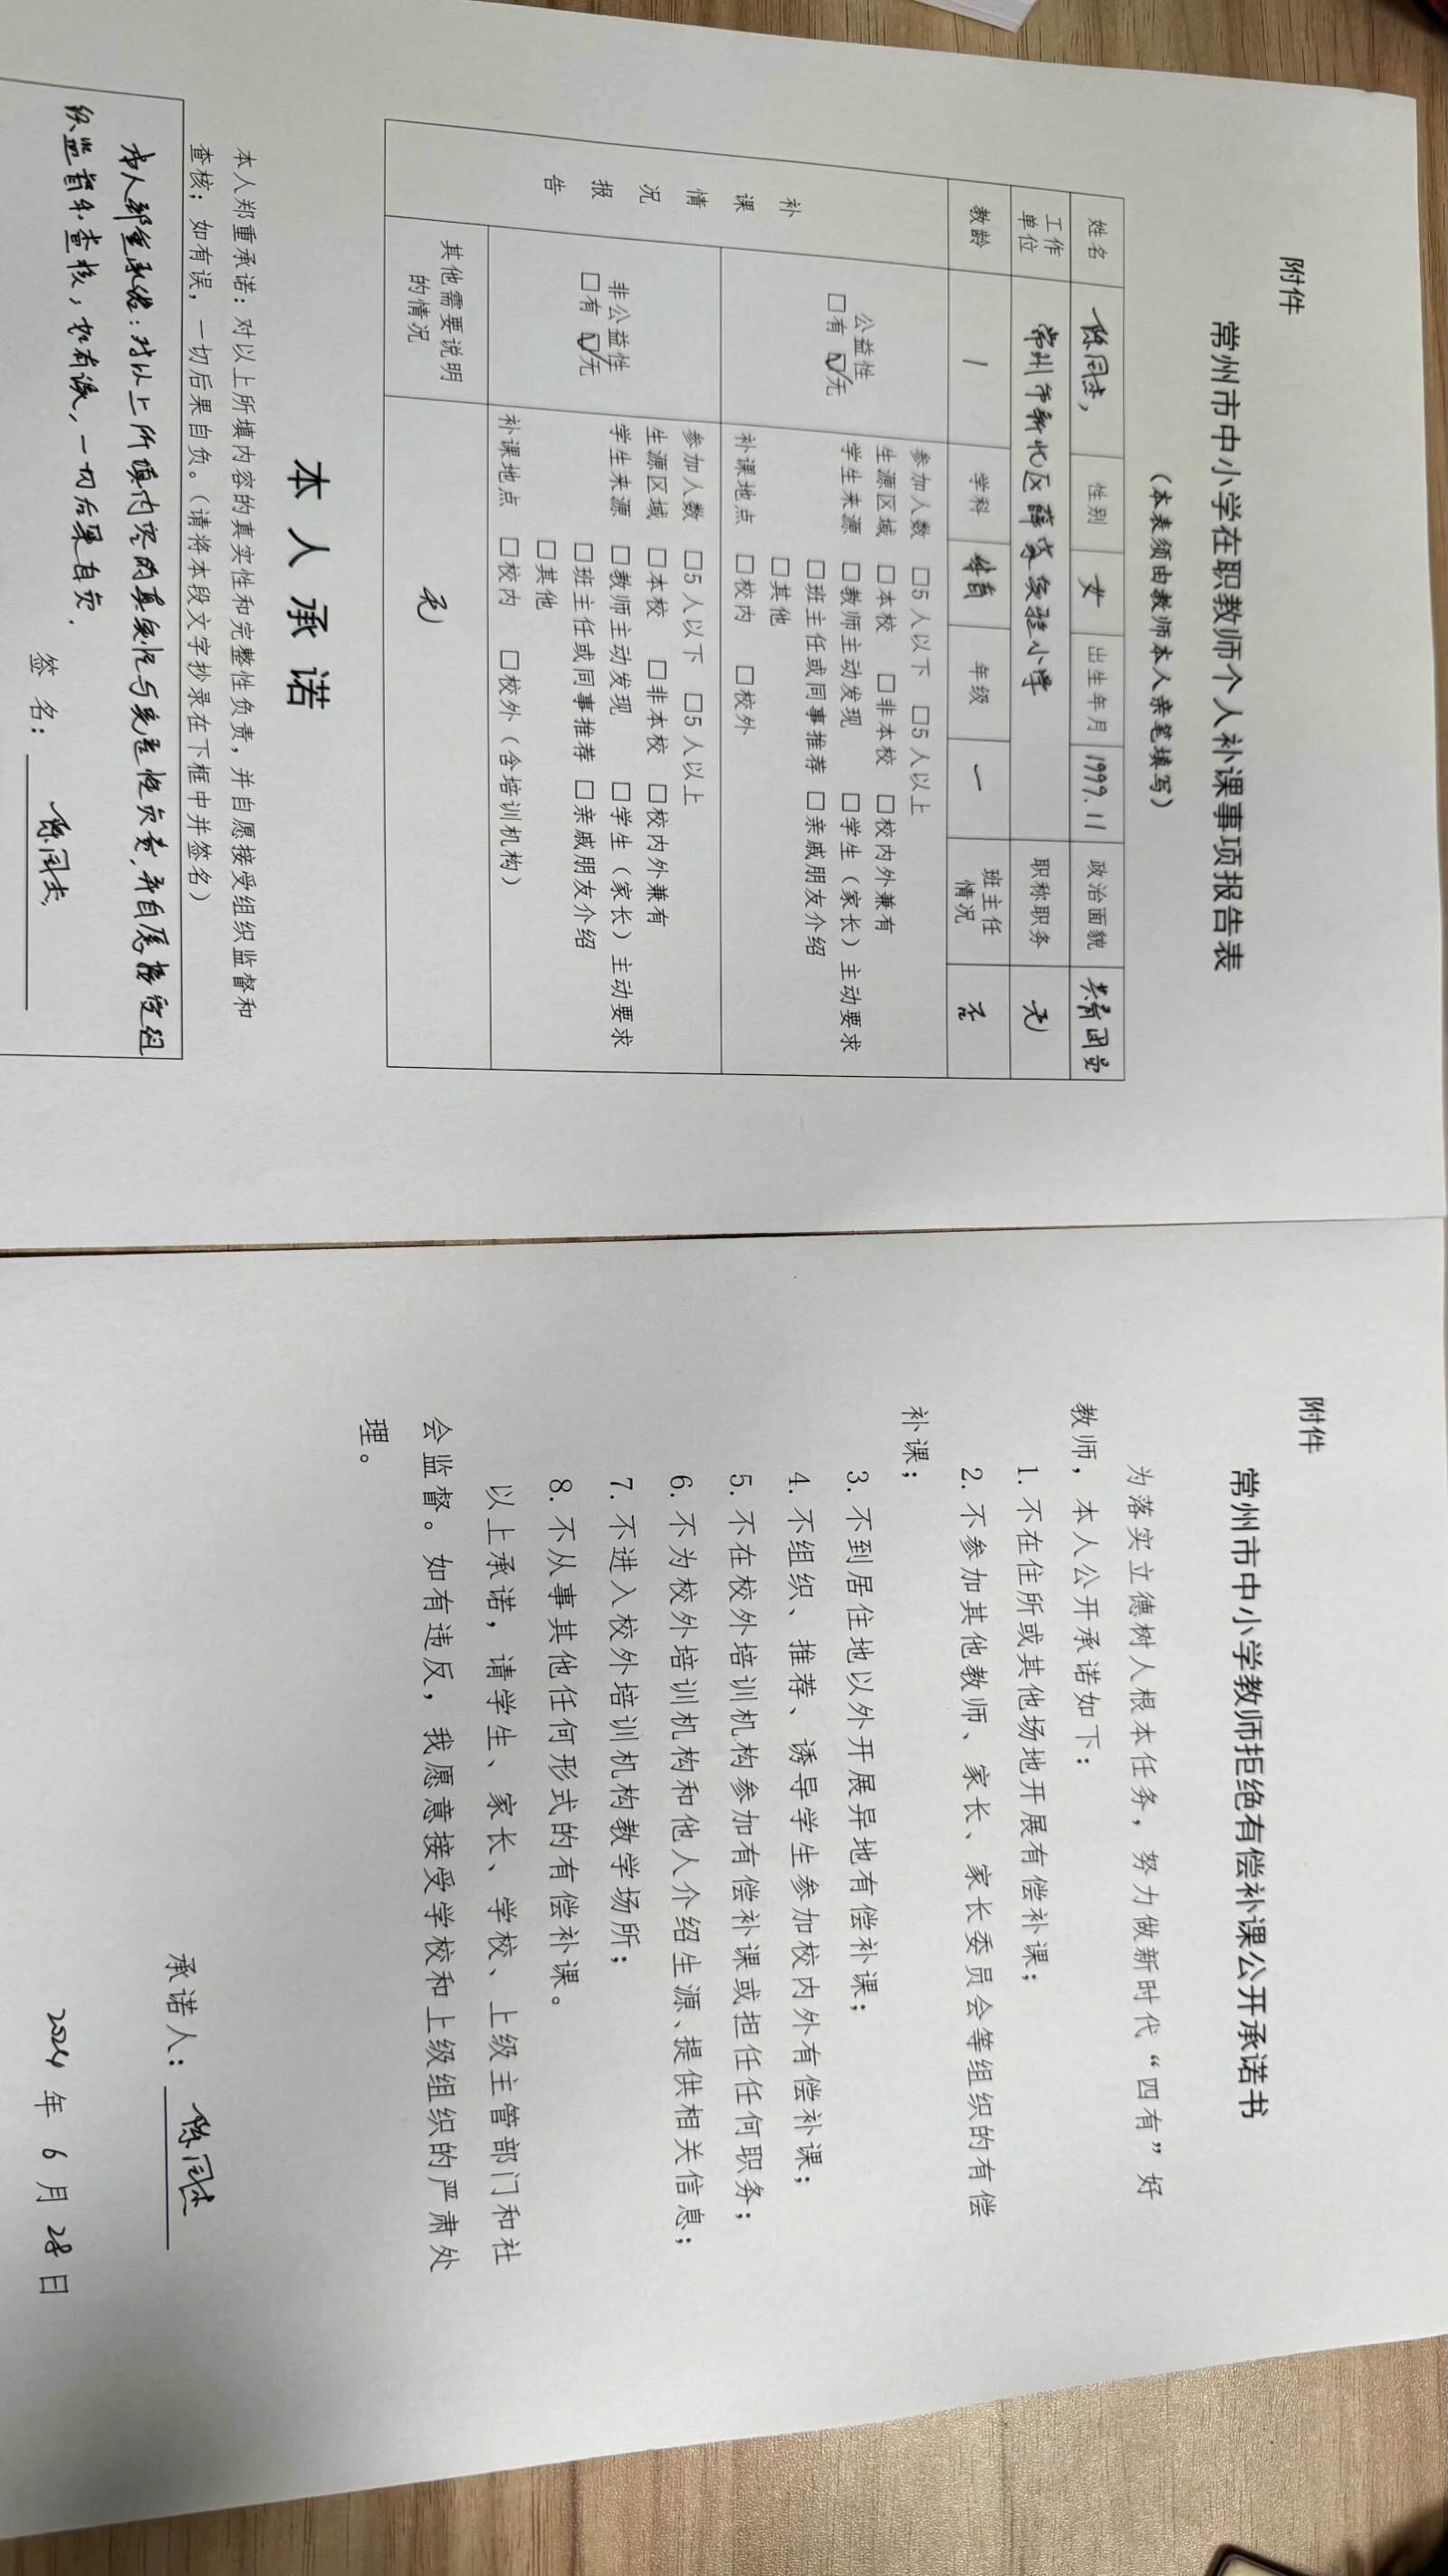 附件
常州市中小学在职教师个人补课事项报告表
（本表须由教师本人亲笔填写）
姓名 性别 女 出生年月 1999.11 政治面貌 共青团员
工作单位 常州市新北区薛家实验小学 职称职务 无
教龄 1 学科 体育 年级 一 班主任情况 否
补课情况报告
公益性
□有 ☑无
参加人数 □5人以下 □5人以上
生源区域 □本校 □非本校 □校内外兼有
学生来源 □教师主动发现 □学生（家长）主动要求
□班主任或同事推荐 □亲戚朋友介绍
□其他
补课地点 □校内 □校外
非公益性
□有 ☑无
参加人数 □5人以下 □5人以上
生源区域 □本校 □非本校 □校内外兼有
学生来源 □教师主动发现 □学生（家长）主动要求
□班主任或同事推荐 □亲戚朋友介绍
□其他
补课地点 □校内 □校外（含培训机构）
其他需要说明的情况 无
本人承诺
本人郑重承诺：对以上所填内容的真实性和完整性负责，并自愿接受组织监督和
查核；如有误，一切后果自负。（请将本段文字抄录在下框中并签名）
本人郑重承诺：对以上所填内容的真实性与完整性负责，并自愿接受组
织监督和查核，如有误，一切后果自负.
签名：
附件
常州市中小学教师拒绝有偿补课公开承诺书
为落实立德树人根本任务，努力做新时代“四有”好
教师，本人公开承诺如下：
1. 不在住所或其他场地开展有偿补课；
2. 不参加其他教师、家长、家长委员会等组织的有偿
补课；
3. 不到居住地以外开展异地有偿补课；
4. 不组织、推荐、诱导学生参加校内外有偿补课；
5. 不在校外培训机构参加有偿补课或担任任何职务；
6. 不为校外培训机构和他人介绍生源、提供相关信息；
7. 不进入校外培训机构教学场所；
8. 不从事其他任何形式的有偿补课。
以上承诺，请学生、家长、学校、上级主管部门和社
会监督。如有违反，我愿意接受学校和上级组织的严肃处
理。
承诺人：
2024 年 6 月 28 日